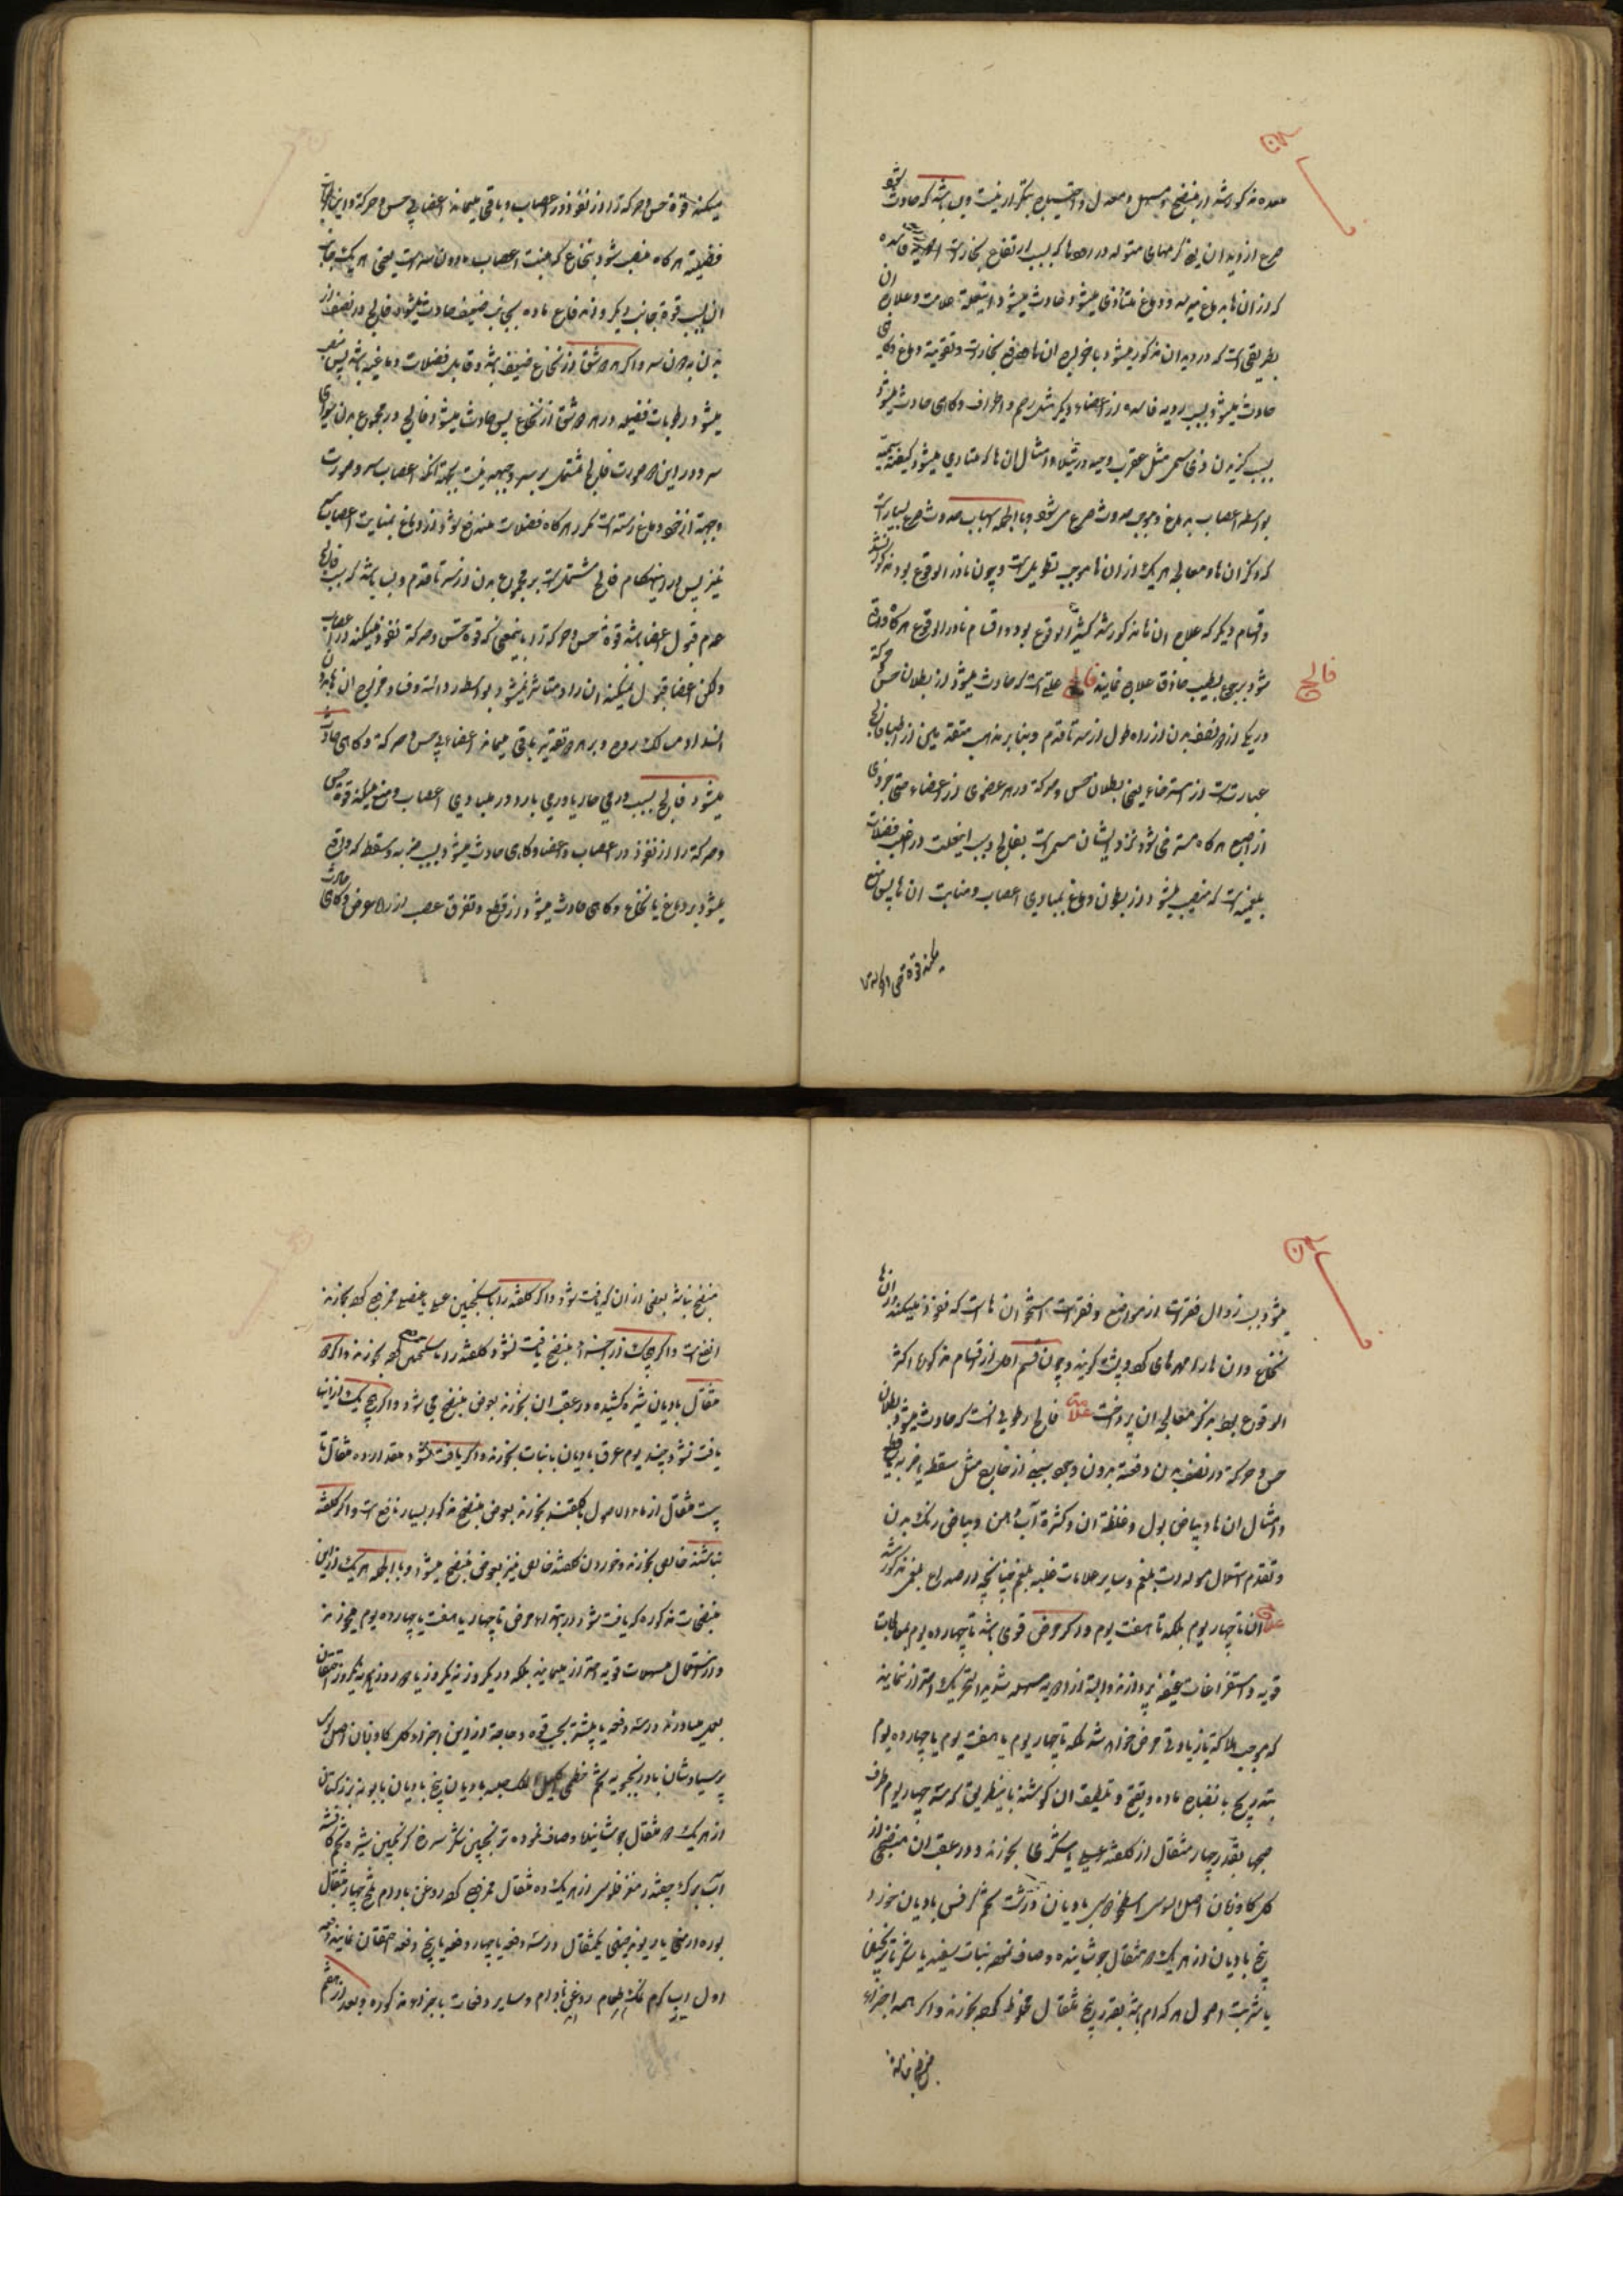 معده مذکور شد از منضج و مسهل و معدل و احتیاج بتکرار نیست و می باشد که حادث
صرع از دیدان یعنی کرمهای متولد در امعا که بسبب ارتفاع بخارات فاسده
که از ان ها بدماغ میرسد و دماغ متأذی میشود و حادث میشود اینعلة علامت و علاج ان
بطریقی است که در دیدان مذکور میشود با خراج ان ها و دفع بخارات و تقویة دماغ و کاهی
حادث میشود بسبب ردیه فاسده از اعضاء دیکر مثل رحم و اطراف و کاهی حادث میشود
بسبب کزیدن ذی سمی مثل عقرب و حیه و رتیلا و امثال ان ها که متادی میشود کیفیة سمیه
بواسطه اعصاب بدماغ و موجب حدوث صرع می شود و بالجمله اسباب حدوث صرع بسیار است
که ذکر ان ها و معالجه هر یک از ان ها موجب تطویل است و چون نادر الوقوع بود مذکور نشد
و اقسام دیکر که علاج ان ها مذکور شد کثیر الوقوع بود و اقسام نادر الوقوع هر کاه واقع
شود برجوع بطبیب حاذق علاج نمایند فالج علتی است که حادث میشود از بطلان حس و حرکة
فالج
در یکی از دو نصف بدن از راه طول از سر تا قدم و بنا بر مذهب متقدمین از اطبا فالج
عبارتست از استرخاء یعنی بطلان حس و حرکة در هر عضوی از اعضاء حتی جزوی
از اصبع هر کاه مسترخی شود نزد ایشان مسمی است بفالج و سبب اینعلت در اغلب فضلات
بلغمیه است که منصب میشود از بطون دماغ بمبادی اعصاب و منابت ان ها پس منع
میکند قوة حس و حرکة را از نفوذ در اعصاب و باقی میماند اعضا بی حس و حرکة و این
فضلیة هر کاه منصب شود بنخاع که منبت اعصاب مادون سر است یعنی هر یک جانب
ان بسبب قوة جانب دیکر و دفع ماده بجانب ضعیف حادث میشود فالج در نصف از
بدن بدون سر و اکر هر دو شق از نخاع ضعیف باشد و قابل فضلات دماغیه باشد پس منصب
میشود رطوبات فضلیه در هر دو شق از نخاع پس حادث میشود فالج در مجموع بدن سوای
سر و در این صورت فالج مشتمل بر سر و جبهه نیست بجهة انکه اعصاب سر و صورت
و جبهة از خود دماغ رسته است مکر هر کاه فضلات مندفع شود از دماغ بمنابت اعصاب سر
نیز پس در اینهنکام فالج مشتمل است بر مجموع بدن از سر تا قدم و می باشد که سبب فالج
عدم قبول اعضا باشد قوة حس و حرکة را باینمعنی که قوة حس و حرکة نفوذ میکند در اعصاب
ولکن اعضا قبول نمیکند ان را و متاثر نمیشود بواسطه ردائت و فساد مزاج ان
انسداد مسالک روح و بر هر دو تقدیر باقی میماند اعضا بی حس و حرکة و کاهی حادث
میشود فالج بسبب ورمی حار یا ورمی بارد در مبادی اعصاب و منع میکند قوة حس
و حرکة را از نفوذ در اعصاب و اعضا و کاهی حادث میشود بسبب ضربه و سقطه که واقع
میشود بر دماغ یا نخاع و کاهی حادث میشود از قطع و تفرق عصب از راه عرض و کاهی حادث
میشود بسبب زوال فقرات از مواضع و فقرات استخوان ها است که نفوذ میکند از ان ها
نخاع و ان ها را مهرهای کمر و پشت کویند و چون قسم اول از اقسام مذکوره اکثر
الوقوع بود بذکر معالجه ان پرداخت علامت فالج رطوبی انست که حادث میشود بطلان
حس و حرکة در نصف بدن دفعة بدون وجود سببی از خارج مثل سقطه یا ضربه یا قطع
و امثال ان ها و بیاض بول و غلظة ان و کثرة آب دهن و بیاض رنک بدن
و تقدم استعمال مولدات بلغم و سایر علامات غلبه بلغم چنانچه در صداع بلغمی مذکور شد
علاج ان تا چهار یوم بلکه تا هفت یوم و اکر مرض قوی باشد تا چهارده یوم بمعالجات
قویه و استفراغات عنیفه نپردازند و البته از ادویه مسهله شدید التحریک احتراز نمایند
که موجب هلاکة یا زیادتی مرض خواهد شد بلکه تا چهار یوم یا هفت یوم یا چهارده یوم
بتدریج بانضاج ماده و تقطیع و تلطیف ان کوشند باینطریق که سه چهار یوم هر
صبح بقدر چهار مثقال از کلقند عسلی یا شکری بخورند و در عقب ان منضجی از
کل کاوزبان اصل السوس اسطوخودوس بادیان درشت تخم کرفس بادیان خورد
بیخ بادیان از هر یک دو مثقال جوشانیده و صاف نموده نبات سفید یا شکر یا ترنجبین
یا شربت اصول هر کدام باشد بقدر پنج مثقال مخلوط کرده بخورند و اکر همه اجزاء
منضج نباشد بعضی از ان که یافت شود و اکر کلقند را با سکنجبین عسلی یا عنصلی ممزوج کرده بخورند
انفع است و اکر هیچیک از اجزاء منضج یافت نشود کلقند را با سکنجبین بخورند و اکر دو
مثقال بادیان شیره کشیده در عقب ان بخورند بعوض منضج می شود و اکر هیچ یک از اینها
یافت نشود چند یوم عرق بادیان با نبات بخورند و اکر یافت نشود مقدار ده مثقال تا
بیست مثقال از ماء الاصول با کلقند بخورند بعوض منضج مذکور بسیار نافع است و اکر کلقند
نباشد خالص بخورند و خوردن کلقند خالص نیز بعوض منضج میشود و بالجمله هر یک از این
منضجات مذکوره که یافت شود در ابتداء مرض تا چهار یا هفت یا چهارده یوم میخورند
و از استعمال مسهلات قویه احتراز مینمایند بلکه در یکروز نه یکروز یا دو روز نه یکروز احتقان
بعمل میاورند در سه دفعه یا بیشتر بحسب قوه و حاجة از این اجزاء کل کاوزبان اصل السوس
پرسیاوشان بادرنجبویه تخم خطمی اکلیل الملک حلبه بادیان بیخ بادیان بابونه بزر کتان
از هر یک دو مثقال جوشانیده و صاف نموده ترنجبین شکر سرخ کزنجبین شیره تخم کافشه
آب برک چغندر مغز فلوس از هر یک ده مثقال ممزوج کرده روغن بادام تلخ چهار مثقال
بوره ارمنی یا ریوند چینی یکمثقال در سه دفعه یا چهار دفعه یا پنج دفعه احتقان نمایند
اول آب کرم نمک طعام روغن بادام و سایر دفعات باجزاء مذکوره و بعد از هضم